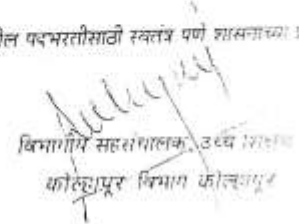 पदभरतीसाठी स्वतंत्र पणे शासनाच्या
विभागीय सहसंचालक, उच्च शिक्षण
कोल्हापूर विभाग कोल्हापूर